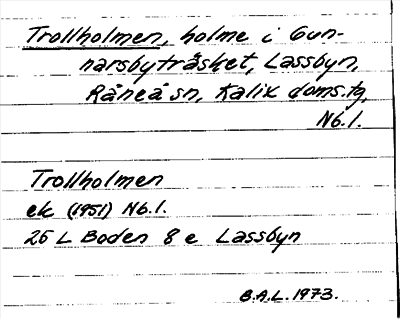 Trollholmen, holme i Gun-
narsbyträsket, Lassbyn,
Råneå sn, Kalix doms.tg,
Nb.l.
Trollholmen
ek (1951) Nb.l.
25 L Boden 8 e Lassbyn
B.A.L. 1973.